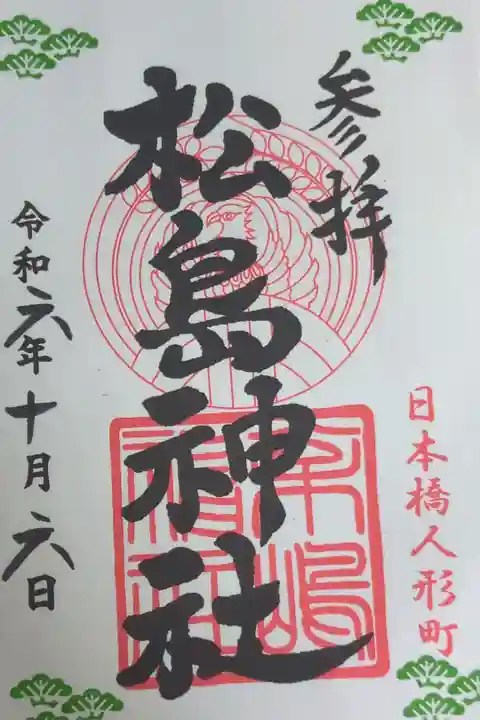 参拝
日本橋人形町
松島神社
令和六年十月六日